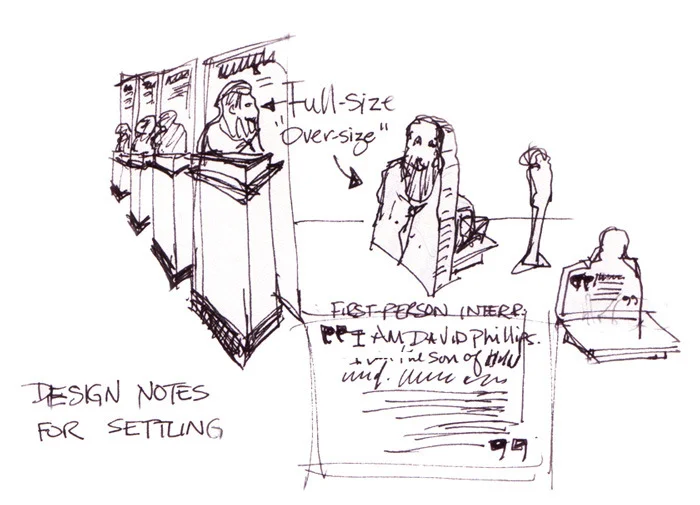 Full-size
"Over-size"
FIRST-PERSON INTERP.
I AM DAVID Phillips.
the son of
DESIGN NOTES
FOR SETTLING